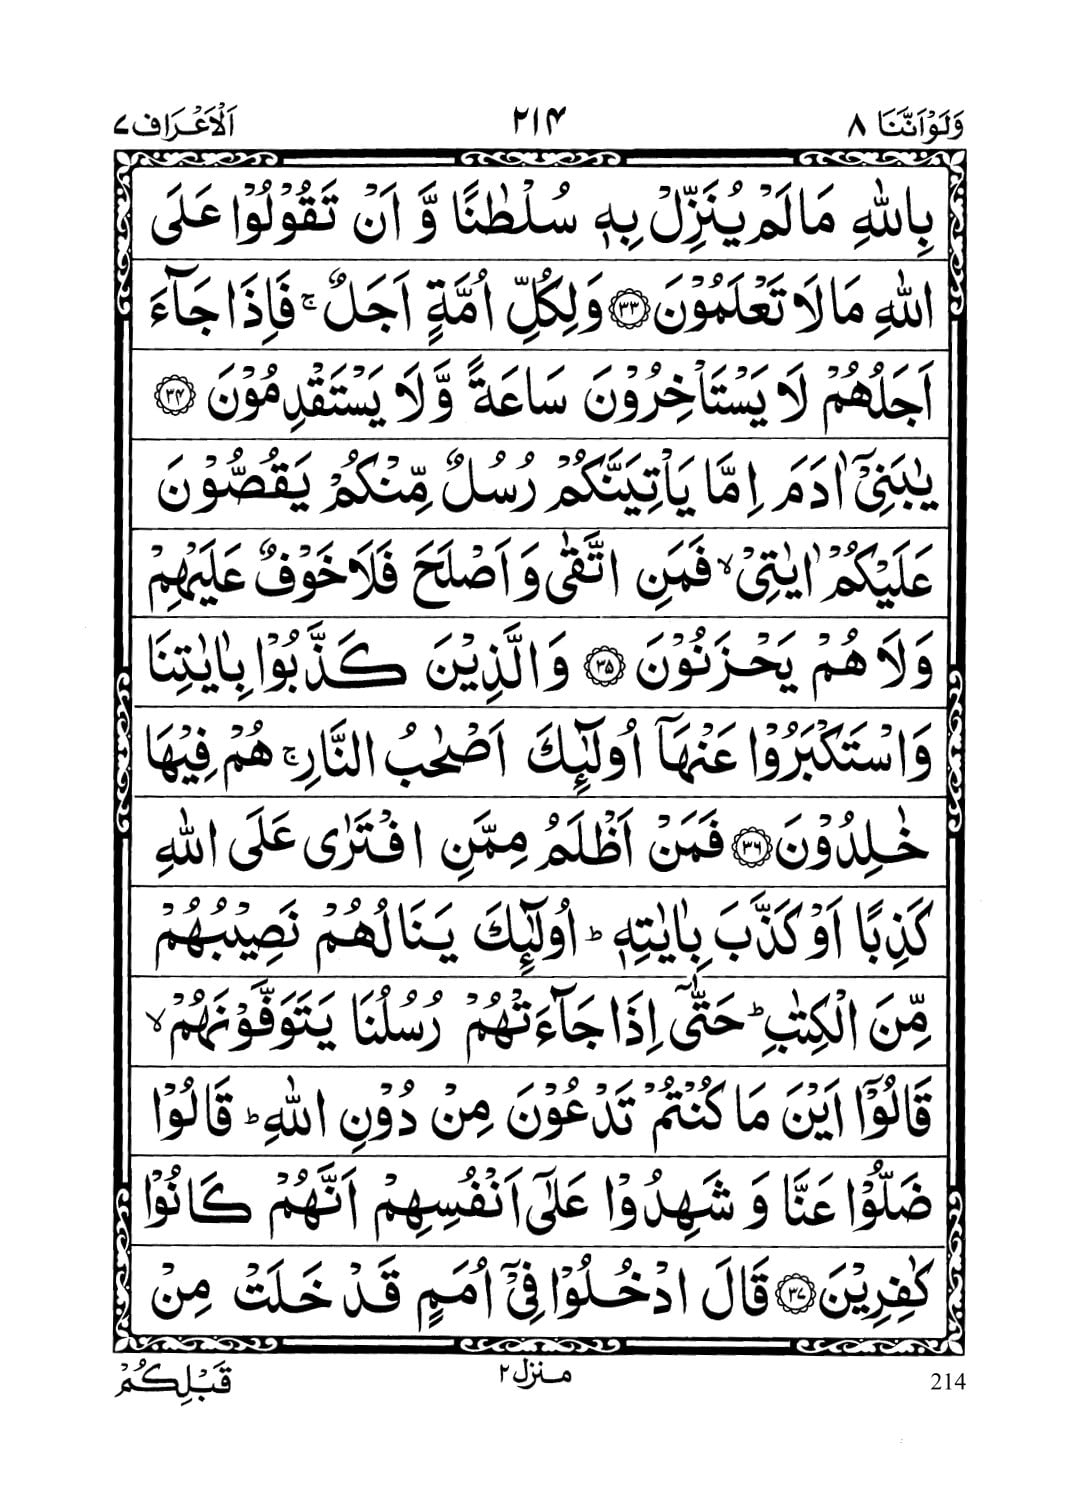 وَلَوْاَنَّنَا ٨ ٢١۴ اَلْاَعْرَاف ٧
بِاللّٰهِ مَا لَمْ يُنَزِّلْ بِهٖ سُلْطٰنًا وَّ اَنْ تَقُوْلُوْا عَلَى
اللّٰهِ مَا لَا تَعْلَمُوْنَ ﴿٣٣﴾ وَلِكُلِّ اُمَّةٍ اَجَلٌ ۚ فَاِذَا جَآءَ
اَجَلُهُمْ لَا يَسْتَاْخِرُوْنَ سَاعَةً وَّلَا يَسْتَقْدِمُوْنَ ﴿٣۴﴾
يٰبَنِيْۤ اٰدَمَ اِمَّا يَاْتِيَنَّكُمْ رُسُلٌ مِّنْكُمْ يَقُصُّوْنَ
عَلَيْكُمْ اٰيٰتِيْ ۙ فَمَنِ اتَّقٰى وَاَصْلَحَ فَلَا خَوْفٌ عَلَيْهِمْ
وَلَا هُمْ يَحْزَنُوْنَ ﴿٣۵﴾ وَالَّذِيْنَ كَذَّبُوْا بِاٰيٰتِنَا
وَاسْتَكْبَرُوْا عَنْهَاۤ اُولٰٓئِكَ اَصْحٰبُ النَّارِ ۚ هُمْ فِيْهَا
خٰلِدُوْنَ ﴿٣۶﴾ فَمَنْ اَظْلَمُ مِمَّنِ افْتَرٰى عَلَى اللّٰهِ
كَذِبًا اَوْ كَذَّبَ بِاٰيٰتِهٖ ؕ اُولٰٓئِكَ يَنَالُهُمْ نَصِيْبُهُمْ
مِّنَ الْكِتٰبِ ؕ حَتّٰۤى اِذَا جَآءَتْهُمْ رُسُلُنَا يَتَوَفَّوْنَهُمْ ۙ
قَالُوْۤا اَيْنَ مَا كُنْتُمْ تَدْعُوْنَ مِنْ دُوْنِ اللّٰهِ ؕ قَالُوْا
ضَلُّوْا عَنَّا وَ شَهِدُوْا عَلٰۤى اَنْفُسِهِمْ اَنَّهُمْ كَانُوْا
كٰفِرِيْنَ ﴿٣٧﴾ قَالَ ادْخُلُوْا فِيْۤ اُمَمٍ قَدْ خَلَتْ مِنْ
214 منزل ٢ قَبْلِكُمْ